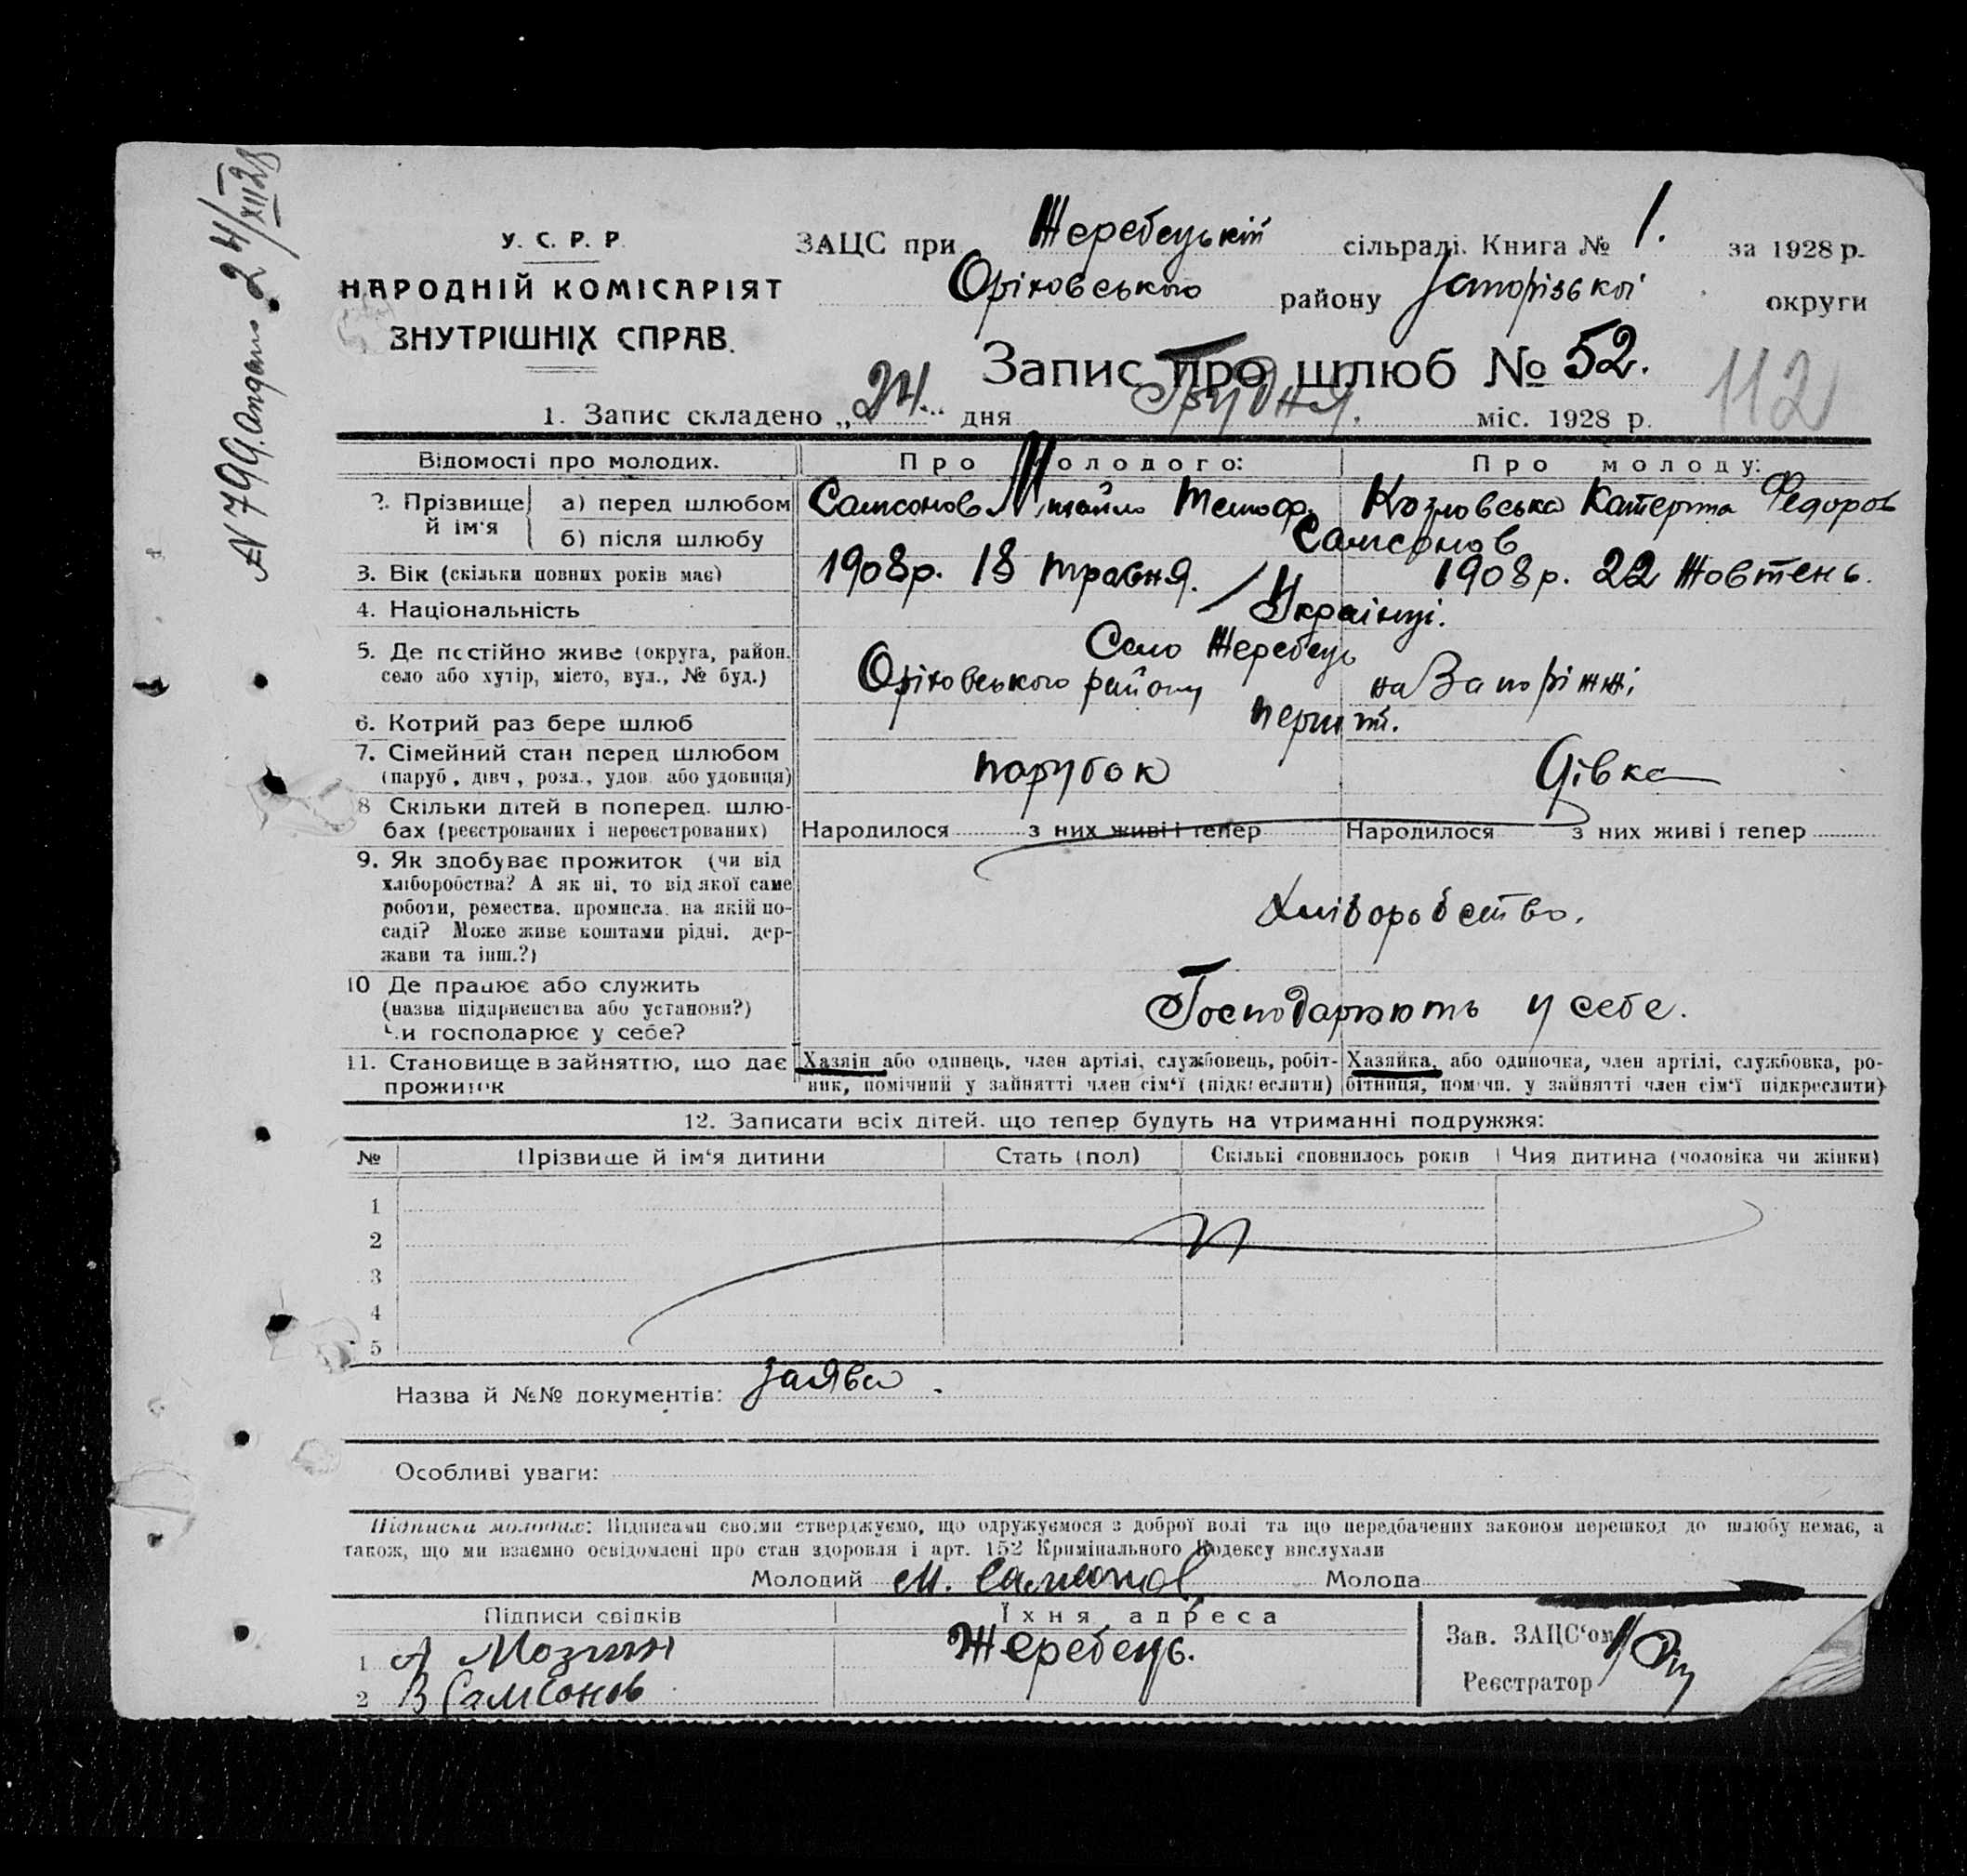 24/XII28
У. С. Р. Р.
НАРОДНІЙ КОМІСАРІЯТ
ЗНУТРІШНІХ СПРАВ.
ЗАЦС при Жеребецькій сільраді. Книга № 1. за 1928 р.
Оріховського району Запорізької округи
Запис про шлюб № 52.
112
1. Запис складено „24" дня Грудня. міс. 1928 р.
№ 799.
Відомості про молодих. Про молодого: Про молоду:
2. Прізвище й ім'я а) перед шлюбом Самсонов Михайло Тимоф. Козловська Катерина Федоров
б) після шлюбу Самсонов
3. Вік (скільки повних років має) 1908р. 18 травня. 1908р. 22 Жовтень.
4. Національність Українці.
5. Де постійно живе (округа, район, Село Жеребець
село або хутір, місто, вул., № буд.) Оріховського району на Запоріжжі
6. Котрий раз бере шлюб перший.
7. Сімейний стан перед шлюбом
(паруб., дівч., розл., удов. або удовиця) парубок Дівка
8 Скільки дітей в поперед. шлю-
бах (реєстрованих і нереєстрованих) Народилося з них живі і тепер Народилося з них живі і тепер
9. Як здобуває прожиток (чи від
хліборобства? А як ні, то від якої саме
роботи, ремества, промисла, на якій по-
саді? Може живе коштами рідні, дер-
жави та інш.?)
Хліборобство.
10 Де працює або служить
(назва підприємства або установи?)
Чи господарює у себе?
Господарюють у себе.
11. Становище в зайняттю, що дає
прожиток
Хазяїн або одинець, член артілі, службовець, робіт-
ник, помічний у зайнятті член сім'ї (підкреслити)
Хазяйка, або одиночка, член артілі, службовка, ро-
бітниця, помічн. у зайнятті член сім'ї підкреслити)
12. Записати всіх дітей, що тепер будуть на утриманні подружжя:
№ Прізвище й ім'я дитини Стать (пол) Скількі сповнилось років Чия дитина (чоловіка чи жінки)
1
2
3
4
5
Назва й №№ документів: заява.
Особливі уваги:
Підписка молодих: Підписами своїми стверджуємо, що одружуємося з доброї волі та що передбачених законом перешкод до шлюбу немає, а
також, що ми взаємно освідомлені про стан здоровля і арт. 152 Кримінального Кодексу вислухали
Молодий М. Самсонов Молода
Підписи свідків Їхня адреса
1 А Мозгин Жеребець.
2 В Самсонов
Зав. ЗАЦС'ом
Реєстратор